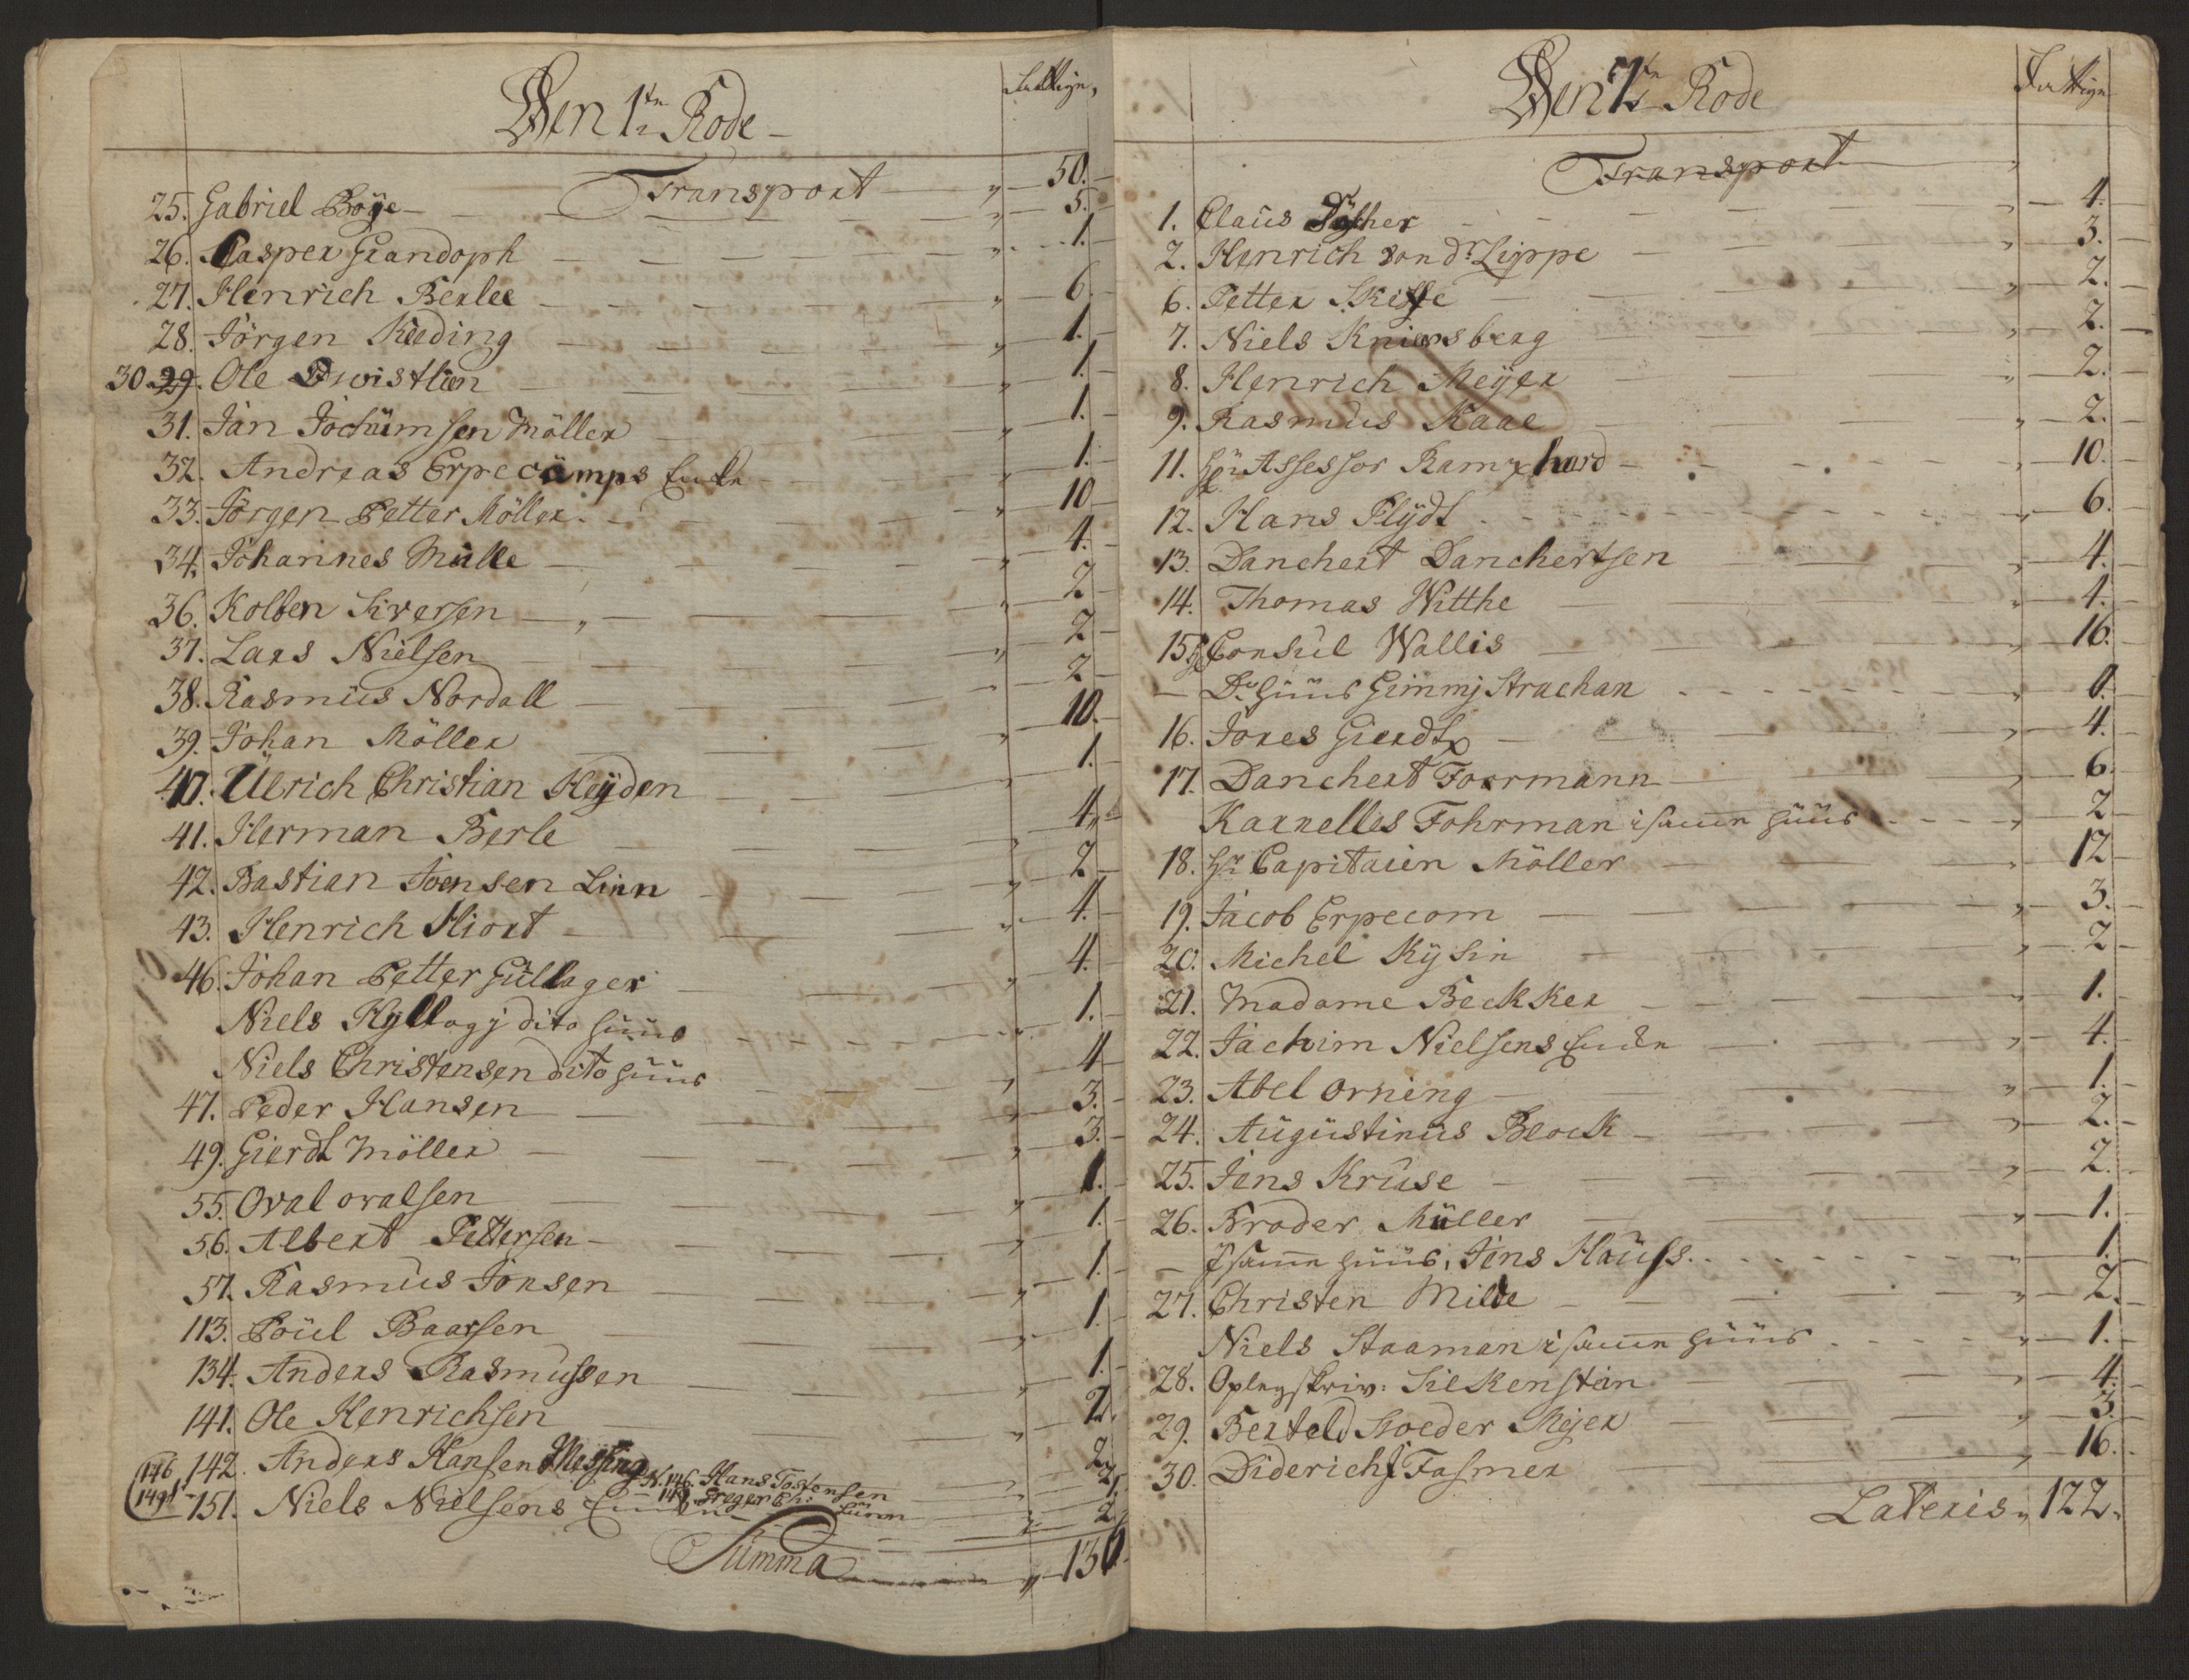 Den 1te Rode
Fattige,
Transport 50.
25. Gabriel Böÿe 5.
26. Casper Grandoph 1.
27. Henrich Berlee 6.
28. Jörgen Keeding 1.
30. 29. Ole Qwistlien 1.
31. Jan Jochümsen Möller 1.
32. Andreas Erpecamps Encke 1.
33. Jörgen Petter Möller 10
34. Johannes Mülle 4.
36. Kolben Siversen 2
37. Lars Nielsen 2
38. Rasmüs Nordall 2
39. Johan Möller 10.
40. Ülrich Christian Heÿden 1.
41. Herman Berle 4
42. Bastian Joensen Linn 2
43. Henrich Hiort 4.
46. Johan Petter Güllager 4.
Niels Hyll dito Hüüs 1.
Niels Christensen dito Hüüs 4
47. Peder Hansen 3.
49. Gierdt Möller 3.
55. Oval ovalsen 1.
56. Albert Pettersen 1.
57. Rasmüs Jonsen 1.
113. Poül Baarsen 1.
134. Anders Rasmussen 1.
141. Ole Henrichsen 2.
142. Anders Hansen Messing 2
146
149
N. 146. Hans Tostensen 2
148. Greger Ch: Lünn
151. Niels Nielsens Encke 2
Summa 130
Den 2te Rode
Fattige
Transport
1. Claüs Fÿscher 4.
2. Henrich von dr Lippe 3.
6. Petter Skiffe 2.
7. Niels Kniepsberg 2.
8. Henrich Meÿer 2.
9. Rasmüs Kaae 2.
11. Hr Assessor Ramshard 10.
12. Hans Flÿdt 6.
13. Danchert Danchertsen 4.
14. Thomas Witthe 4.
15 H Consül Wallis 16.
Do Hüüs Gimmj Strachan 6.
16. Jores Gierdtz 4.
17. Danchert Foorman 6.
Karnelles Fohrman i samme Hüüs 2
18. Hr Capitaien Möller 12
19. Jacob Erpecom 3.
20. Michel Kÿsin 2
21. Madame Beckker 1.
22. Jachim Nielsens Encke 4.
23. Abel Orning 1.
24. Aügüstinüs Block 2.
25. Jens Krüse 2.
26. Broder Müller 1.
I samme Hüüs, Jens Haüss 1.
27. Christen Milde 2.
Niels Staaman i samme Hüüs 1.
28. Oplagskriv: Silkenstein 4.
29. Bertold Stoeder Meÿer 3.
30. Diderich Fasmer 16.
Lateris 122.